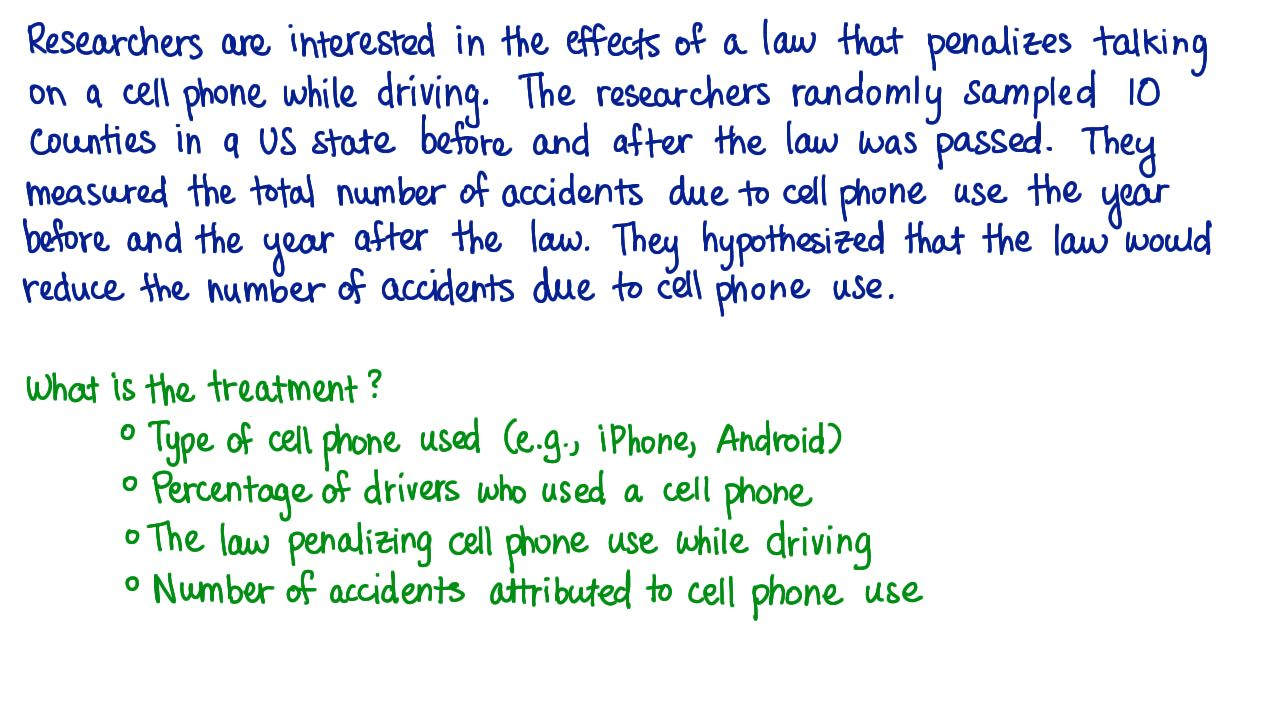 Researchers are interested in the effects of a law that penalizes talking
on a cell phone while driving. The researchers randomly sampled 10
counties in a US state before and after the law was passed. They
measured the total number of accidents due to cell phone use the year
before and the year after the law. They hypothesized that the law would
reduce the number of accidents due to cell phone use.
What is the treatment?
o Type of cell phone used (e.g., iPhone, Android)
o Percentage of drivers who used a cell phone
o The law penalizing cell phone use while driving
o Number of accidents attributed to cell phone use